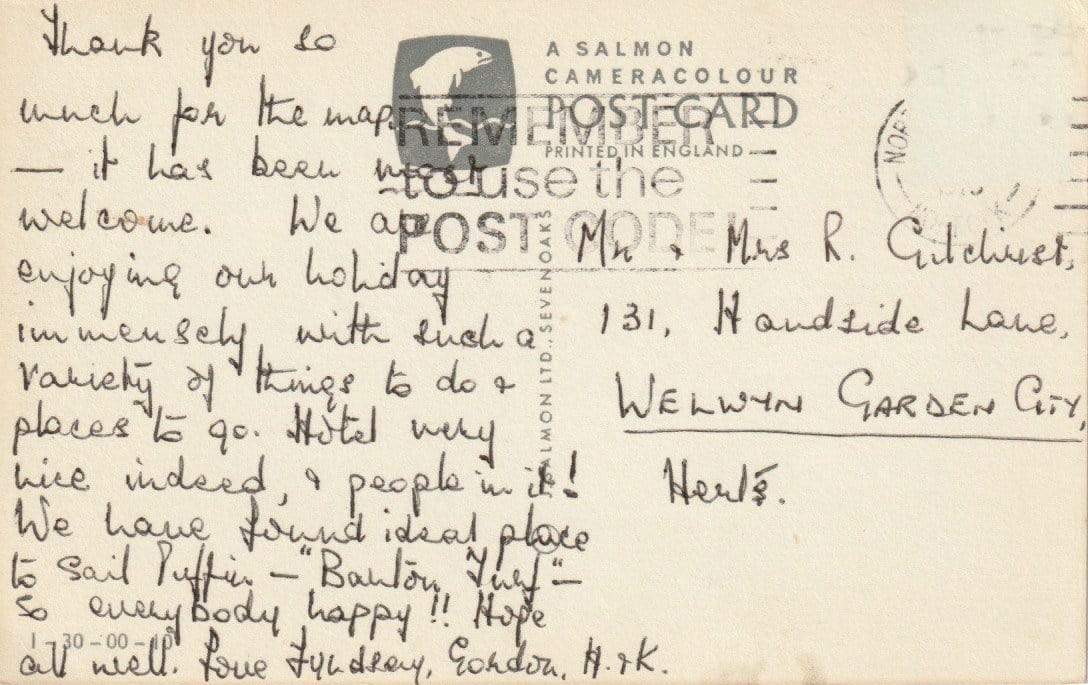 Thank you so
much for the map
— it has been most
welcome. We are
enjoying our holiday
immensely, with such a
variety of things to do &
places to go. Hotel very
nice indeed, & people in it!
We have found ideal place
to sail Puffin — "Barton Turf" —
so everybody happy!! Hope
all well. Love Lyndsay, Gordon, H. & K.
1-30-00-10
A SALMON
CAMERACOLOUR
POST CARD
PRINTED IN ENGLAND
REMEMBER
to use the
POST CODE
SALMON LTD., SEVENOAKS
NOR
Mr & Mrs R. Gilchrist,
131, Handside Lane,
WELWYN GARDEN CITY,
Herts.